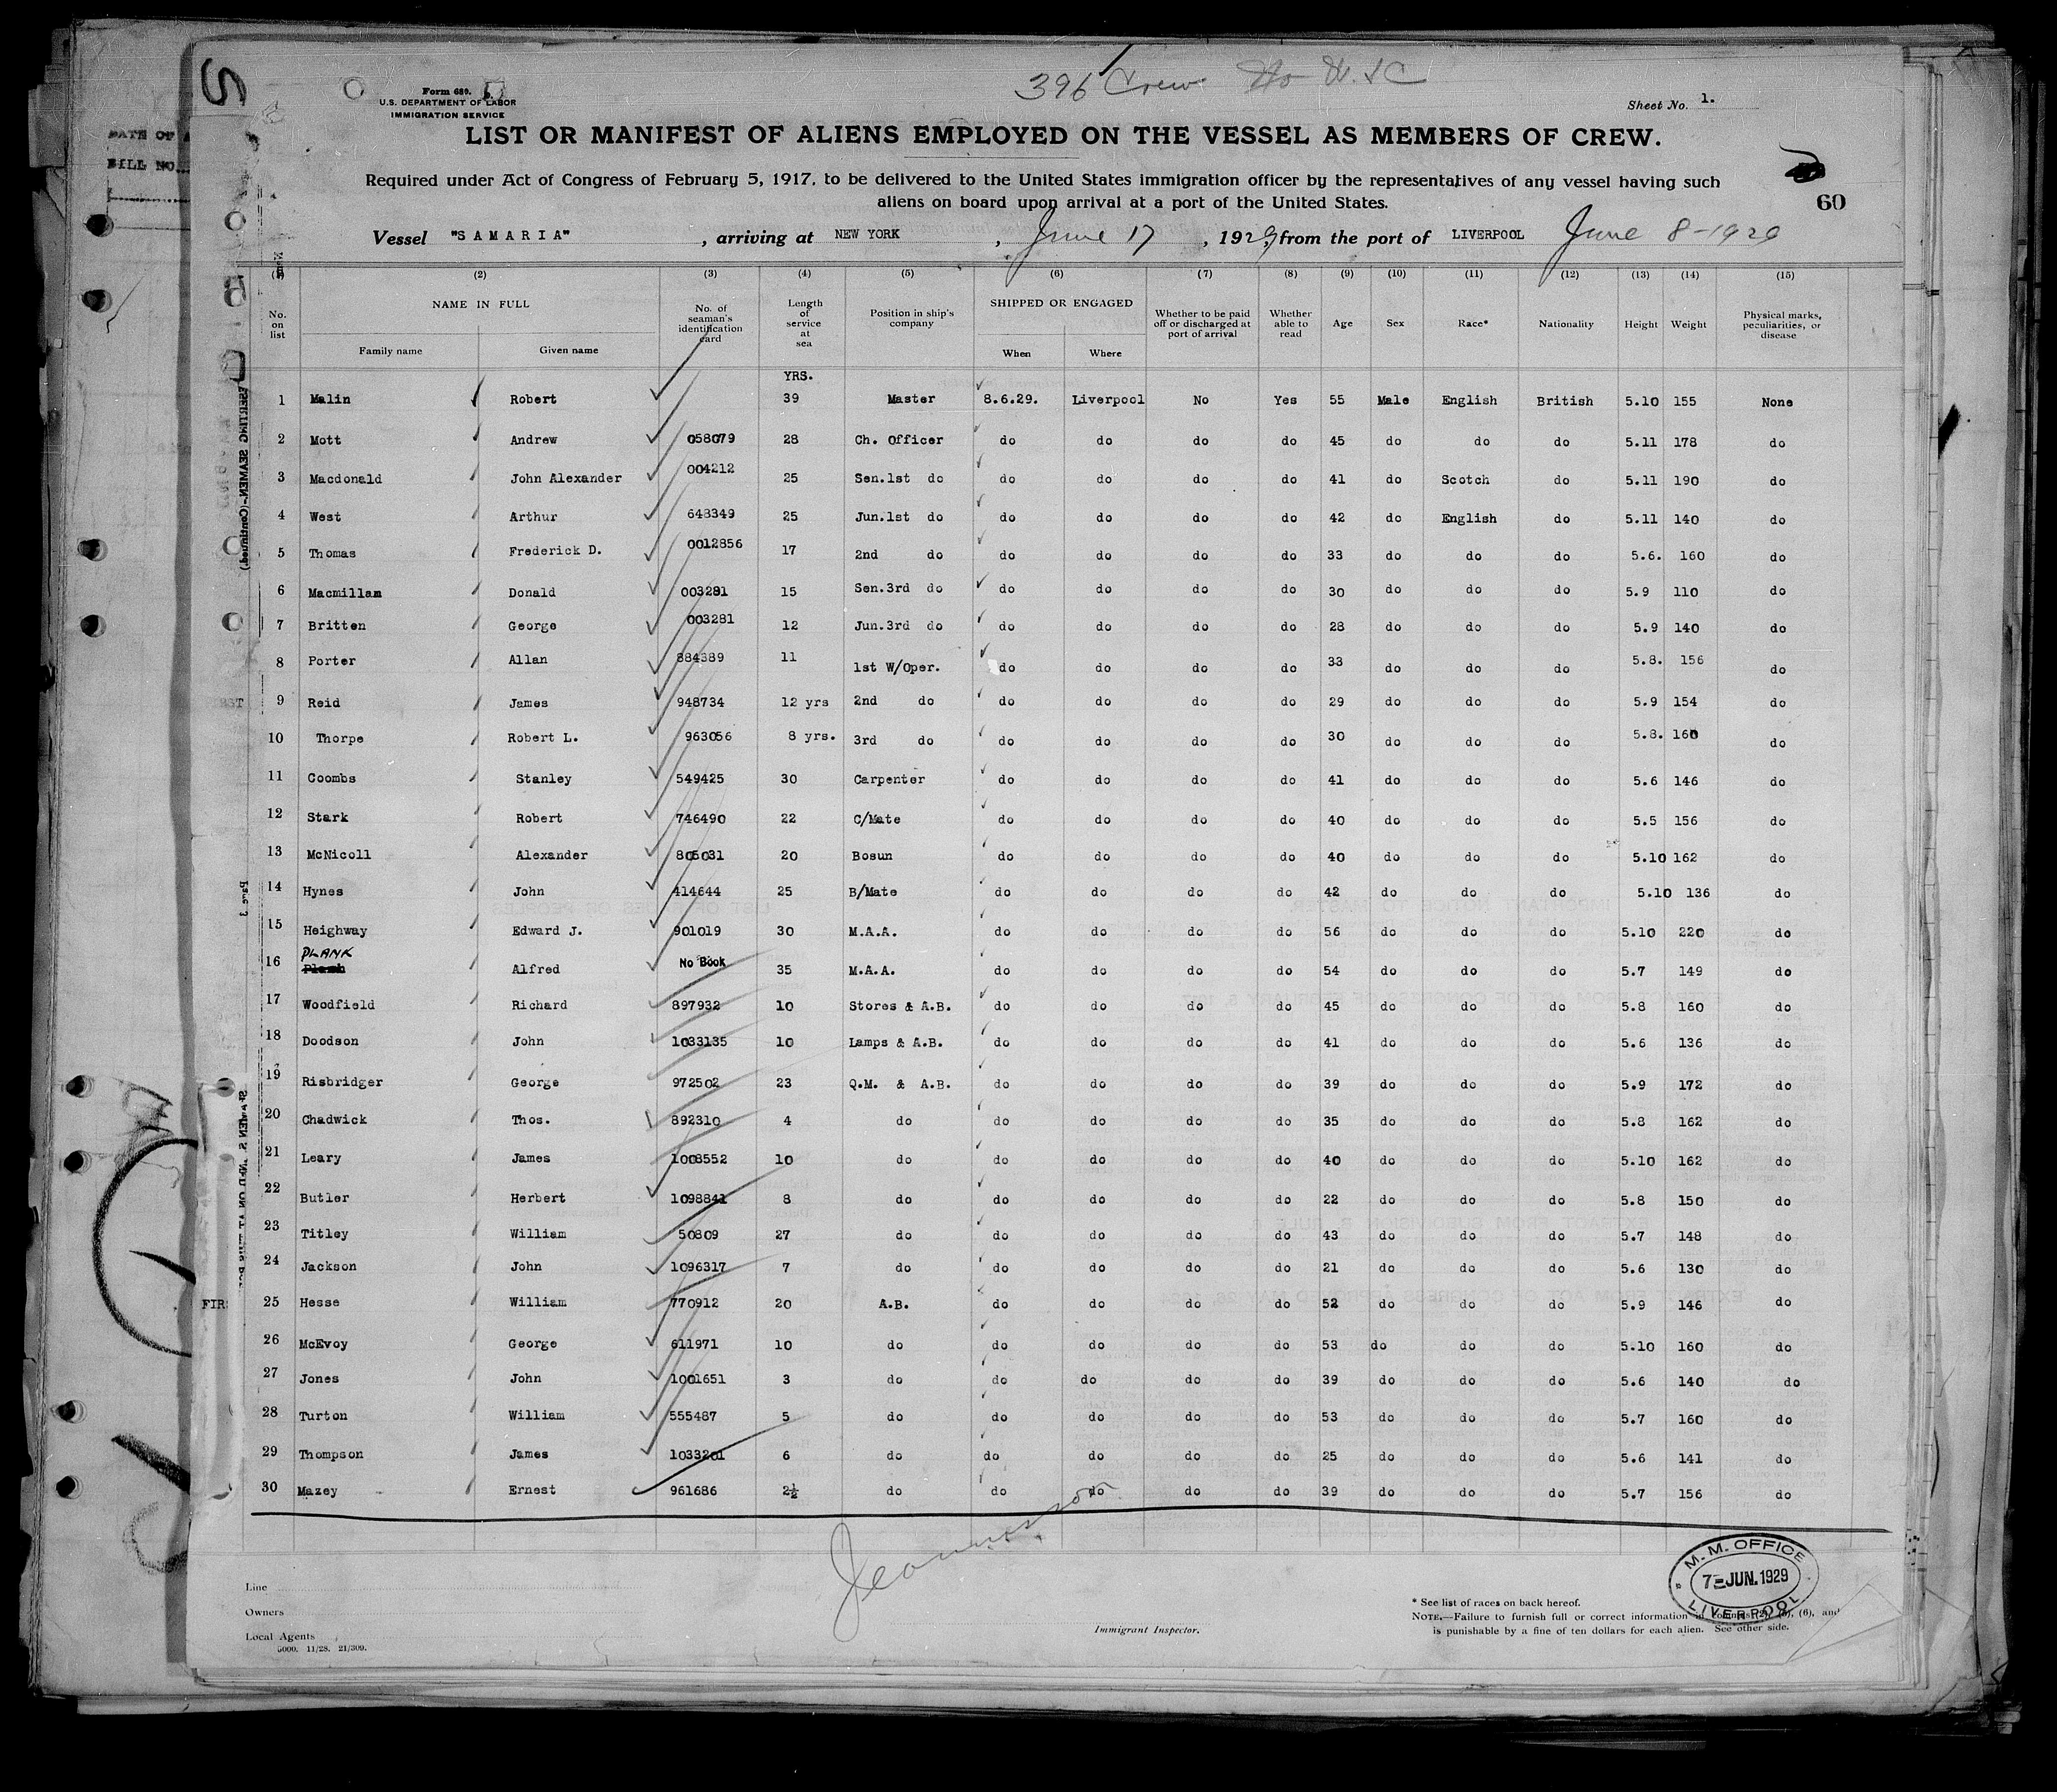 396 Crew
Form 680.
U.S. DEPARTMENT OF LABOR
IMMIGRATION SERVICE
Sheet No. 1.
LIST OR MANIFEST OF ALIENS EMPLOYED ON THE VESSEL AS MEMBERS OF CREW.
Required under Act of Congress of February 5, 1917, to be delivered to the United States immigration officer by the representatives of any vessel having such
aliens on board upon arrival at a port of the United States.
60
Vessel "SAMARIA", arriving at NEW YORK, June 17, 1929, from the port of LIVERPOOL June 8-1929
(1) (2) (3) (4) (5) (6) (7) (8) (9) (10) (11) (12) (13) (14) (15)
No. on list NAME IN FULL Family name Given name No. of seaman's identification card Length of service at sea Position in ship's company SHIPPED OR ENGAGED When Where Whether to be paid off or discharged at port of arrival Whether able to read Age Sex Race* Nationality Height Weight Physical marks, peculiarities, or disease
YRS.
1 Malin Robert 39 Master 8.6.29. Liverpool No Yes 55 Male English British 5.10 155 None
2 Mott Andrew 058079 28 Ch. Officer do do do do 45 do do do 5.11 178 do
3 Macdonald John Alexander 004212 25 Sen.1st do do do do do 41 do Scotch do 5.11 190 do
4 West Arthur 648349 25 Jun.1st do do do do do 42 do English do 5.11 140 do
5 Thomas Frederick D. 0012856 17 2nd do do do do do 33 do do do 5.6. 160 do
6 Macmillan Donald 003281 15 Sen.3rd do do do do do 30 do do do 5.9 110 do
7 Britten George 003281 12 Jun.3rd do do do do do 28 do do do 5.9 140 do
8 Porter Allan 884389 11 1st W/Oper. do do do do 33 do do do 5.8. 156 do
9 Reid James 948734 12 yrs 2nd do do do do do 29 do do do 5.9 154 do
10 Thorpe Robert L. 963056 8 yrs. 3rd do do do do do 30 do do do 5.8. 160 do
11 Coombs Stanley 549425 30 Carpenter do do do do 41 do do do 5.6 146 do
12 Stark Robert 746490 22 C/Mate do do do do 40 do do do 5.5 156 do
13 McNicoll Alexander 805031 20 Bosun do do do do 40 do do do 5.10 162 do
14 Hynes John 414644 25 B/Mate do do do do 42 do do do 5.10 136 do
15 Heighway Edward J. 901019 30 M.A.A. do do do do 56 do do do 5.10 220 do
PLANK
16 Alfred No Book 35 M.A.A. do do do do 54 do do do 5.7 149 do
17 Woodfield Richard 897932 10 Stores & A.B. do do do do 45 do do do 5.8 160 do
18 Doodson John 1033135 10 Lamps & A.B. do do do do 41 do do do 5.6 136 do
19 Risbridger George 972502 23 Q.M. & A.B. do do do do 39 do do do 5.9 172 do
20 Chadwick Thos. 892310 4 do do do do do 35 do do do 5.8 162 do
21 Leary James 1008552 10 do do do do do 40 do do do 5.10 162 do
22 Butler Herbert 1098841 8 do do do do do 22 do do do 5.8 150 do
23 Titley William 50809 27 do do do do do 43 do do do 5.7 148 do
24 Jackson John 1096317 7 do do do do do 21 do do do 5.6 130 do
25 Hesse William 770912 20 A.B. do do do do 52 do do do 5.9 146 do
26 McEvoy George 611971 10 do do do do do 53 do do do 5.10 160 do
27 Jones John 1001651 3 do do do do do 39 do do do 5.6 140 do
28 Turton William 555487 5 do do do do do 53 do do do 5.7 160 do
29 Thompson James 1033201 6 do do do do do 25 do do do 5.6 141 do
30 Mazey Ernest 961686 2½ do do do do do 39 do do do 5.7 156 do
M. M. OFFICE
7-JUN.1929
LIVERPOOL
Line
Owners
Local Agents
5000. 11/28. 21/309.
Immigrant Inspector.
* See list of races on back hereof.
NOTE.—Failure to furnish full or correct information in columns (2), (5), (6), and
is punishable by a fine of ten dollars for each alien. See other side.